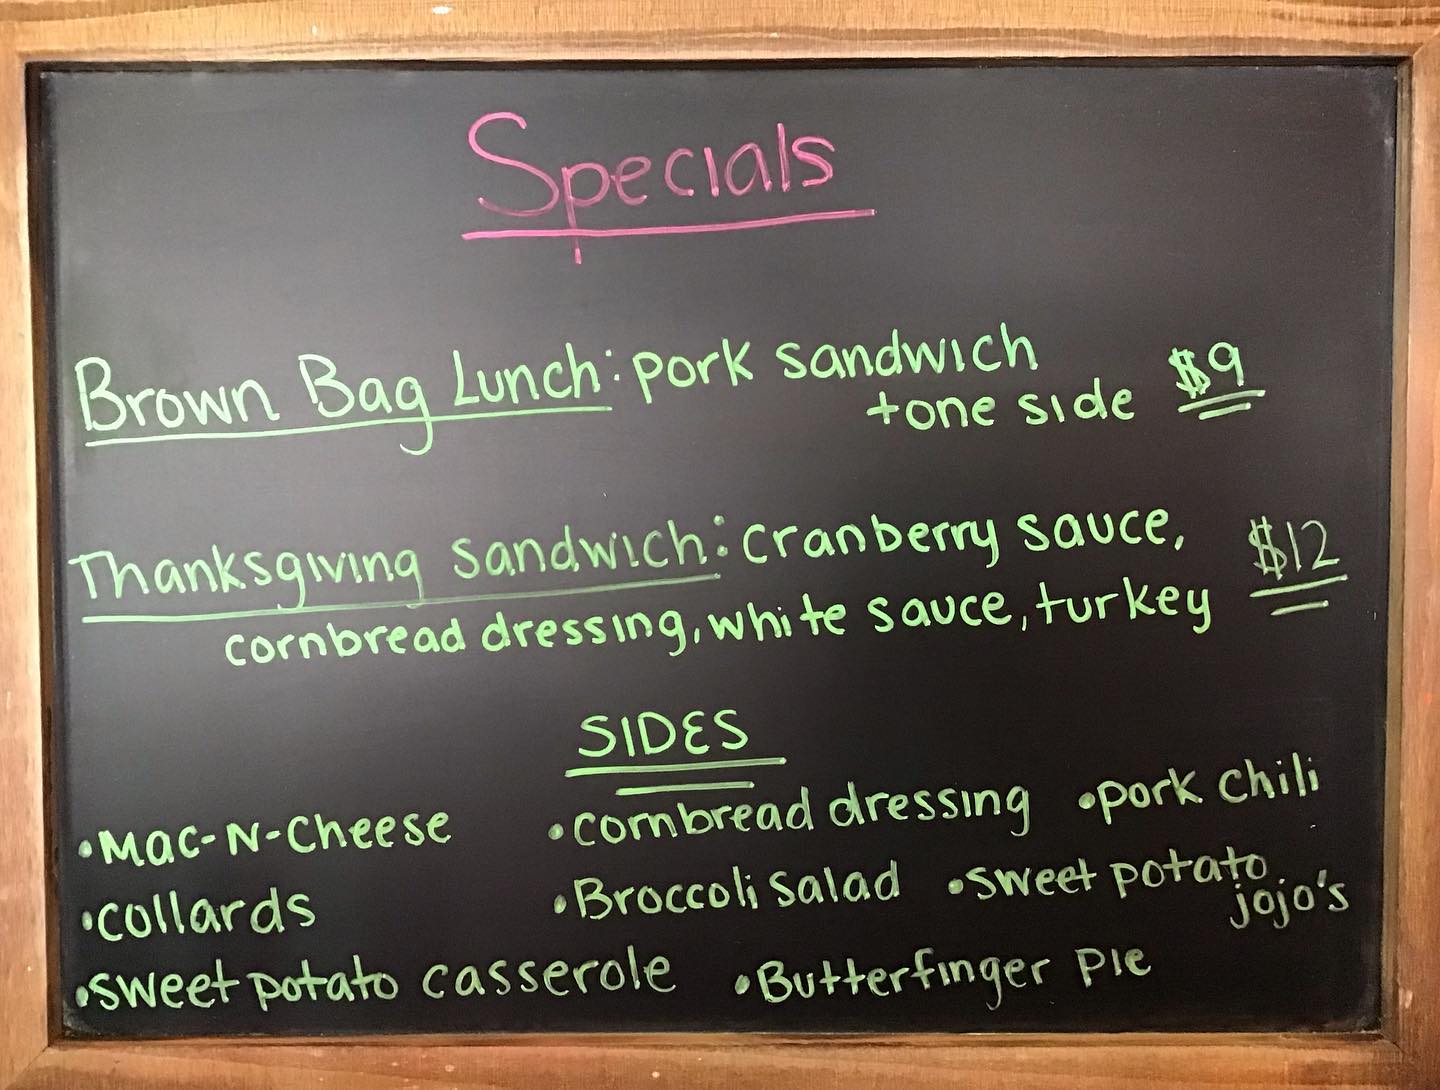 Specials
Brown Bag Lunch: pork sandwich
+one side $9
Thanksgiving sandwich: cranberry sauce,
cornbread dressing, white sauce, turkey $12
SIDES
•Mac-N-Cheese •cornbread dressing •pork chili
•collards •Broccoli salad •sweet potato
jojo's
•sweet potato casserole •Butterfinger pie